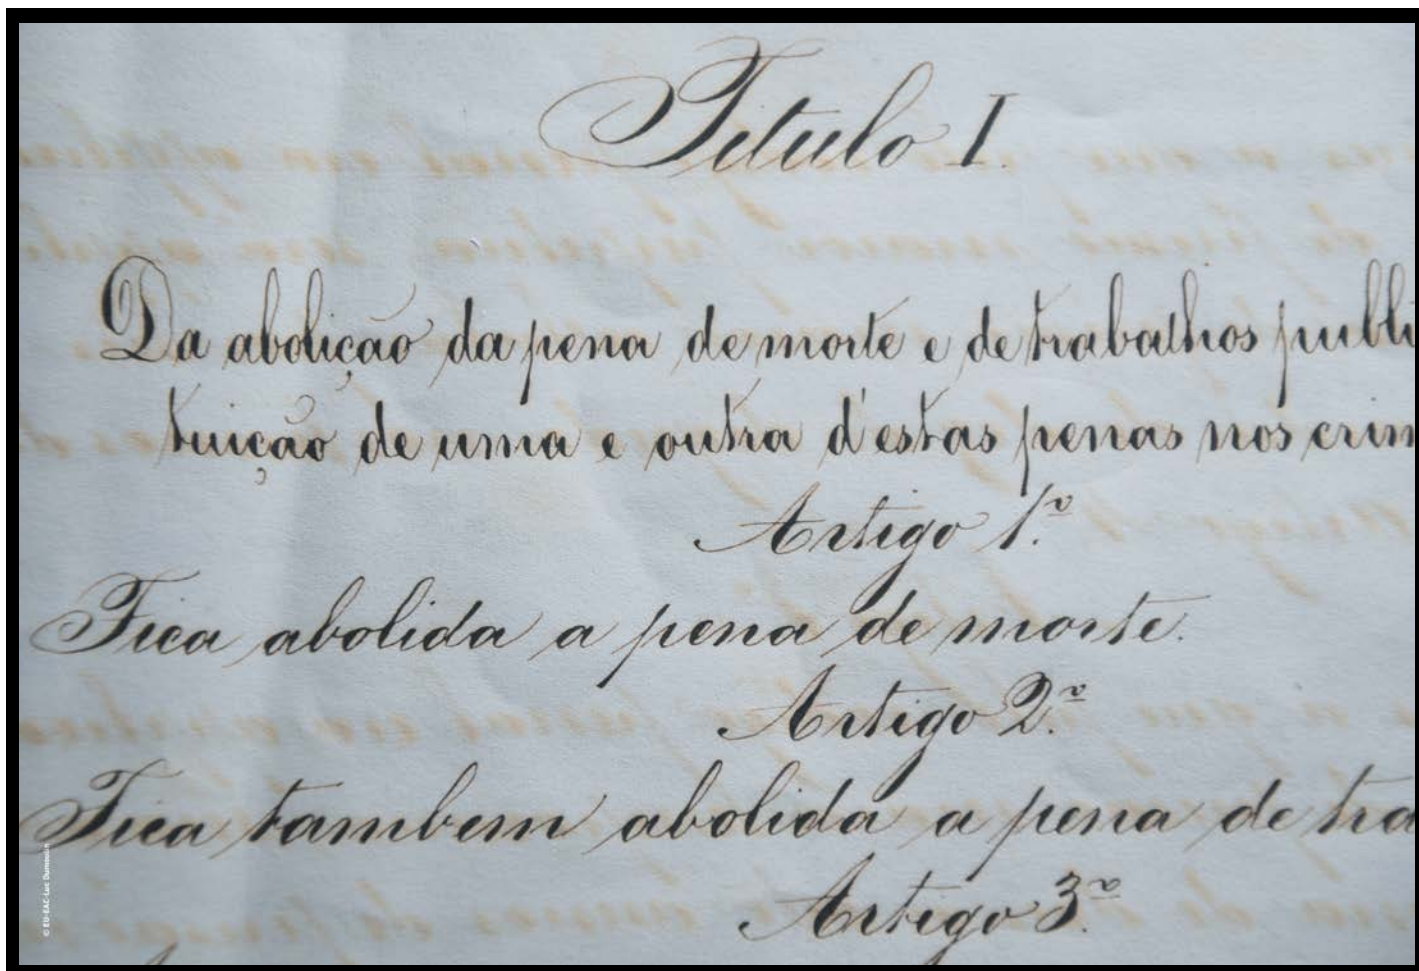 Titulo I.
Da abolição da pena de morte e de trabalhos publi
tuição de uma e outra d'estas penas nos crim
Artigo 1.º
Fica abolida a pena de morte.
Artigo 2.º
Fica tambem abolida a pena de tra
Artigo 3.º
© EU-EAC-Luc Dumoulin